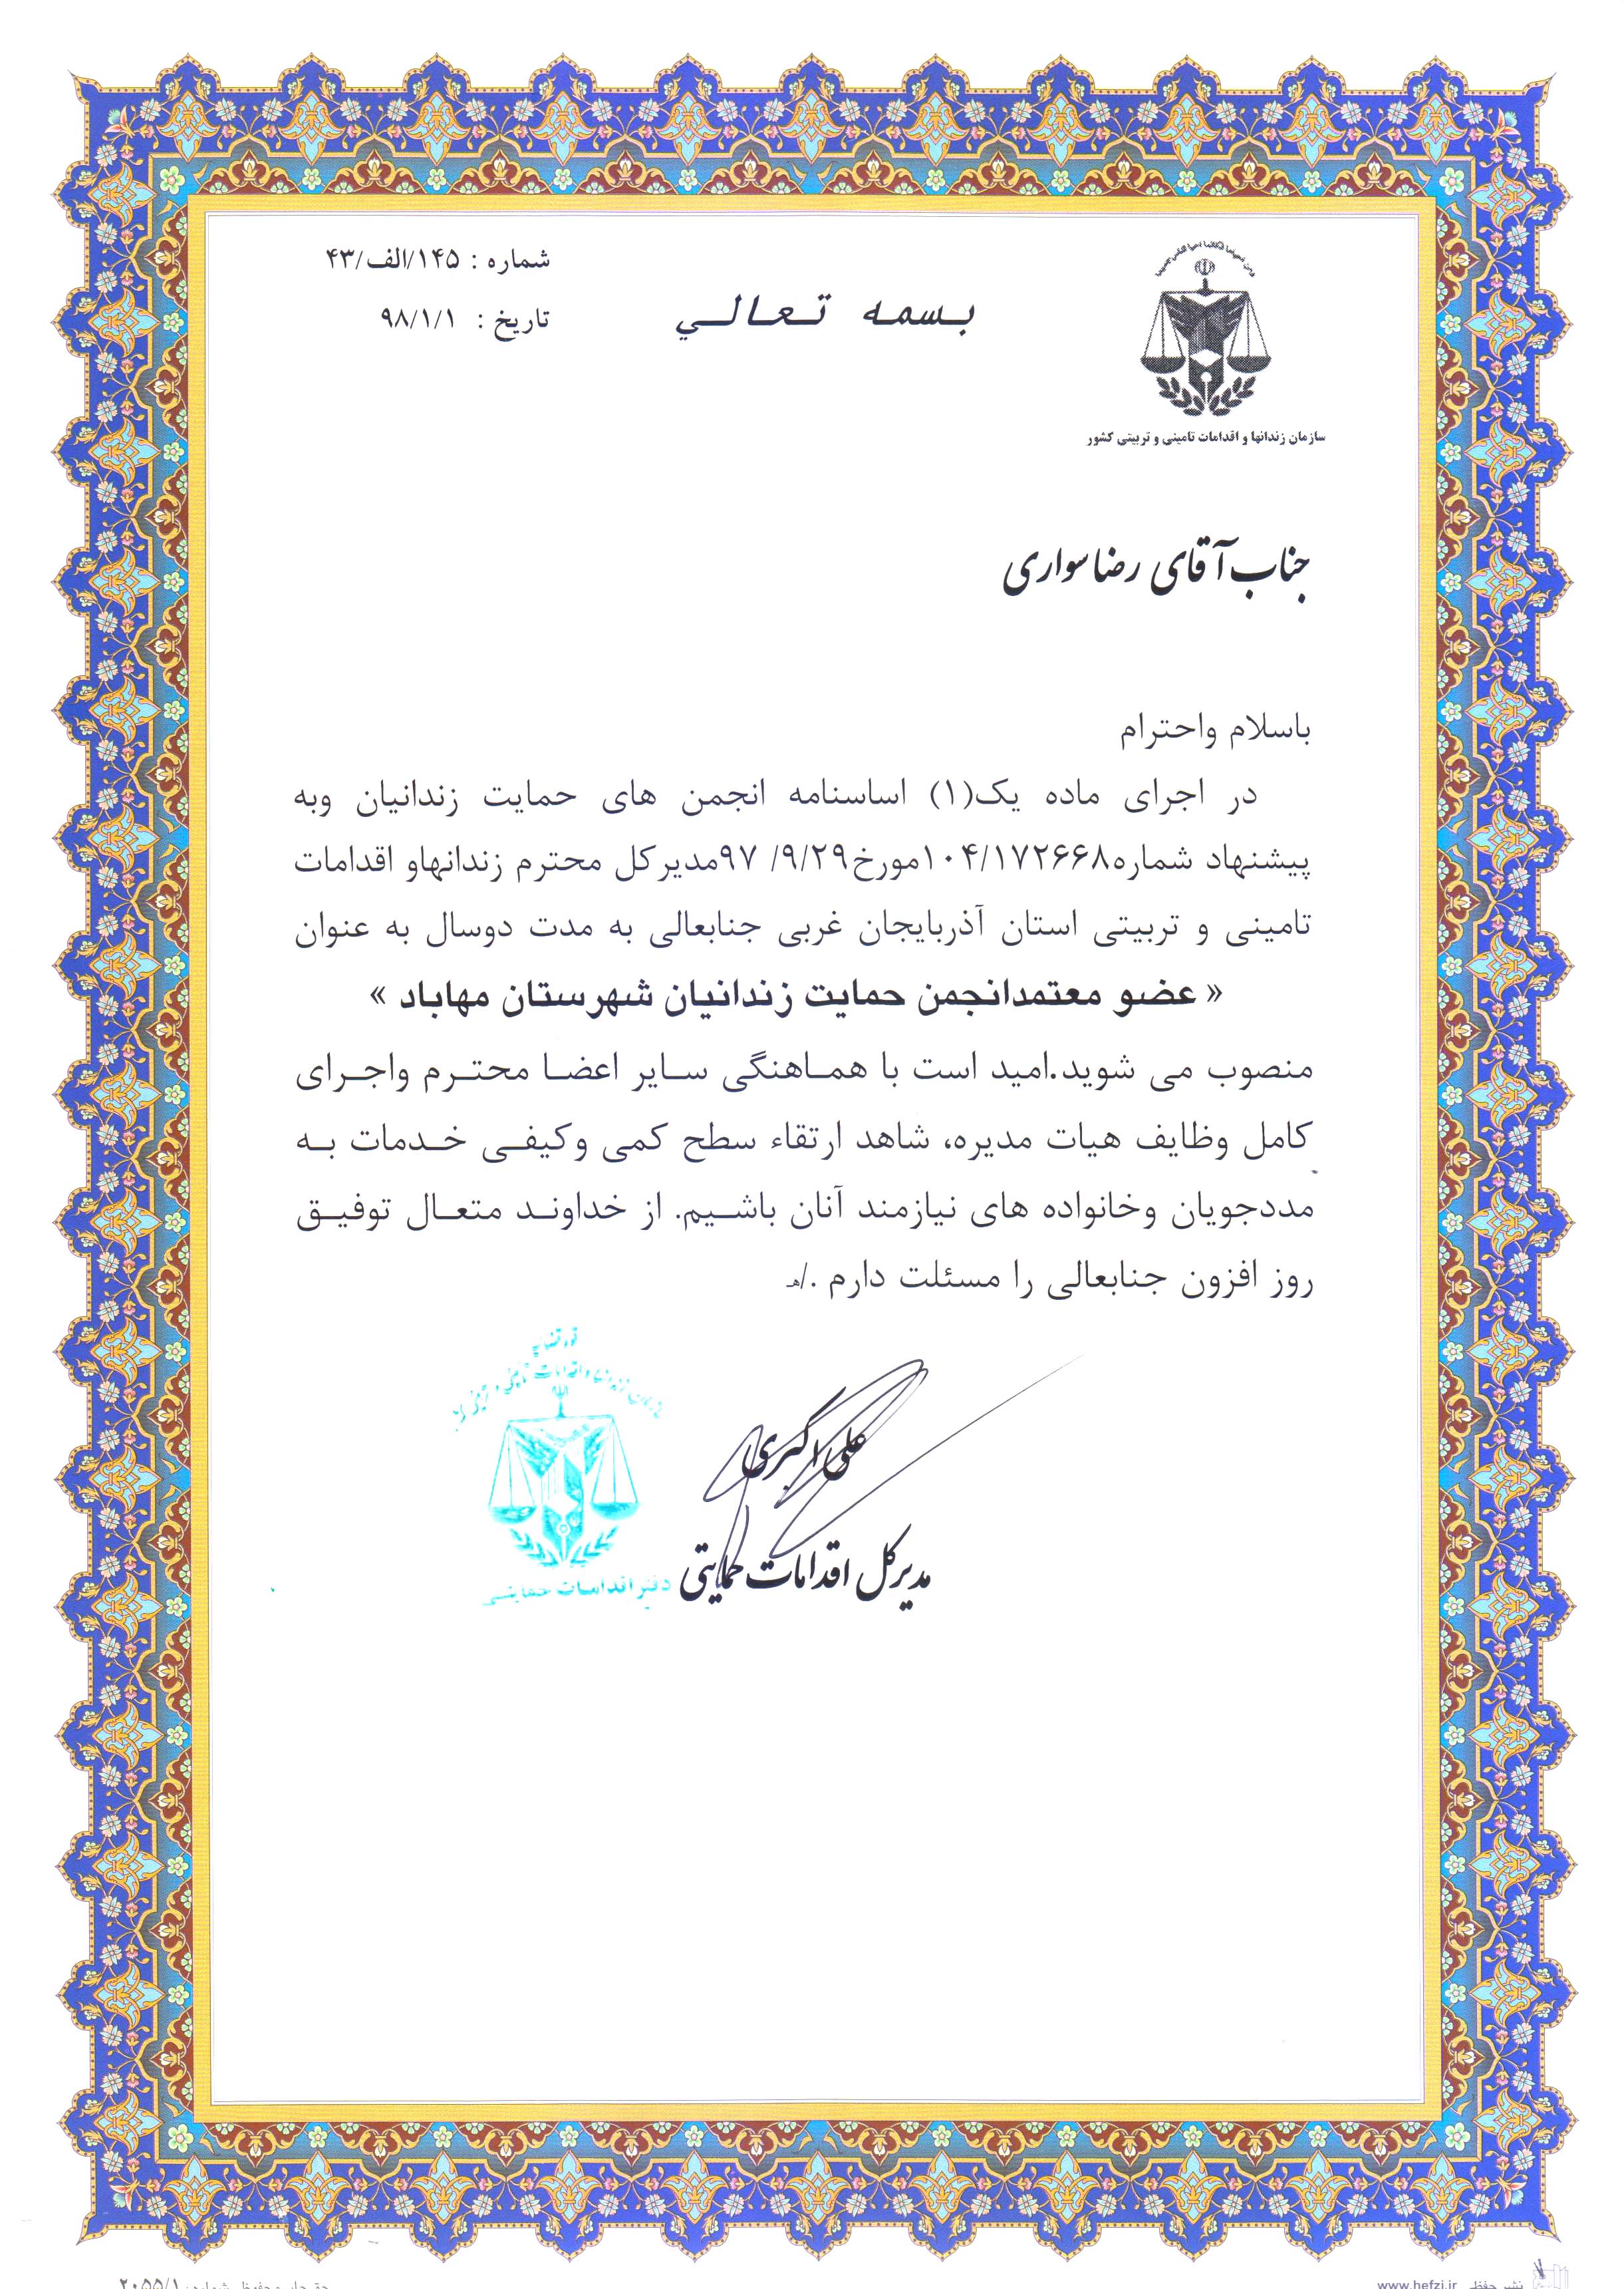 شماره : ۱۴۵/الف/۴۳
تاریخ : ۹۸/۱/۱
بسمه تعالي
سازمان زندانها و اقدامات تامینی و تربیتی کشور
جناب آقای رضا سواری
باسلام واحترام
در اجرای ماده یک(۱) اساسنامه انجمن های حمایت زندانیان وبه
پیشنهاد شماره۱۰۴/۱۷۲۶۶۸مورخ۹/۲۹/ ۹۷مدیرکل محترم زندانهاو اقدامات
تامینی و تربیتی استان آذربایجان غربی جنابعالی به مدت دوسال به عنوان
« عضو معتمدانجمن حمایت زندانیان شهرستان مهاباد »
منصوب می شوید.امید است با هماهنگی سایر اعضا محترم واجرای
کامل وظایف هیات مدیره، شاهد ارتقاء سطح کمی وکیفی خدمات به
مددجویان وخانواده های نیازمند آنان باشیم. از خداوند متعال توفیق
روز افزون جنابعالی را مسئلت دارم ./هـ
علی اکبری
مدیرکل اقدامات حمایتی
قوه قضاییه
دفتر اقدامات حمایتی
نشر حفظی www.hefzi.ir